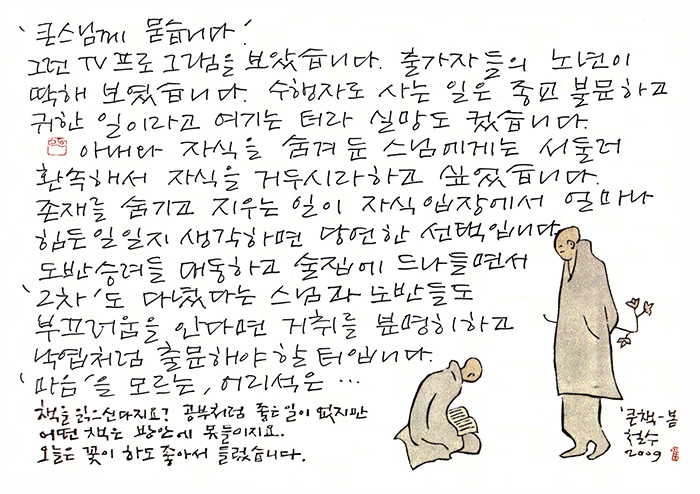 '큰스님께 묻습니다.'
그런 TV 프로그램을 보았습니다. 출가자들의 노년이
딱해 보였습니다. 수행자로 사는 일은 종교 불문하고
귀한 일이라고 여기는 터라 실망도 컸습니다.
아내와 자식을 숨겨 둔 스님에게는 서둘러
환속해서 자식을 거두시라하고 싶었습니다.
존재를 숨기고 지우는 일이 자식 입장에서 얼마나
힘든일일지 생각하면 당연한 선택입니다.
도반승려들 대동하고 술집에 드나들면서
'2차'도 다녔다는 스님과 도반들도
부끄러움을 안다면 거취를 분명히하고
낙엽처럼 출문해야 할 터입니다.
'마음'을 모르는, 어리석은 …
책을 읽으신다지요? 공부처럼 좋은일이 없지만
어떤 책은 방안에 못들이지요.
오늘은 꽃이 하도 좋아서 들렀습니다.
'큰책-봄
철수
2009